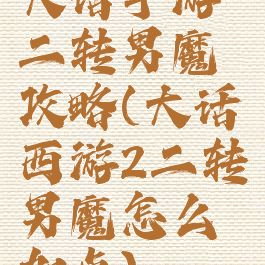 大话手游
二转男魔
攻略(大话
西游2二转
男魔怎么
加点)